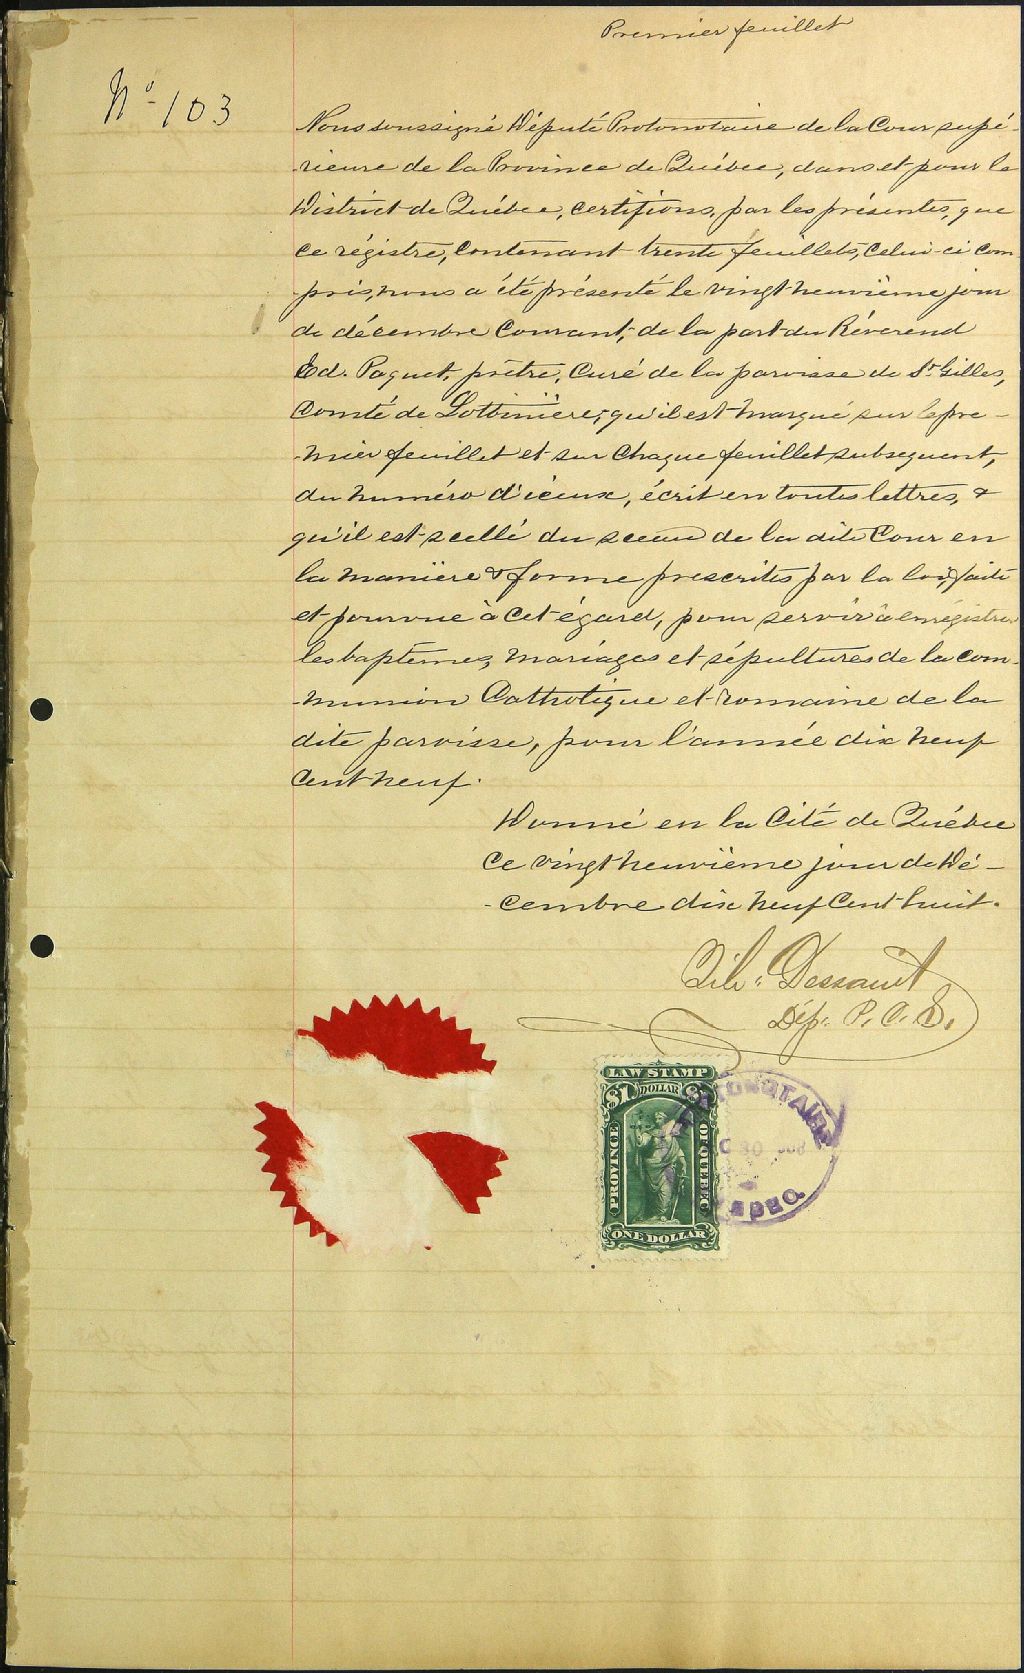 Premier feuillet
No. 103
Nous soussigné Député Protonotaire de la Cour supé-
-rieure de la Province de Québec, dans et pour le
District de Québec, certifions, par les présentes, que
ce régistre, contenant trente feuillets, celui-ci com
pris, nous a été présenté le vingt neuvième jour
de décembre courant, de la part du Révérend
Ed. Paquet, prêtre, Curé de la paroisse de St. Gilles,
Comté de Lotbinière; qu'il est marqué sur le pre-
-mier feuillet et sur chaque feuillet subsequent,
du numéro d'iceux, écrit en toutes lettres, &
qu'il est scellé du sceau de la dite Cour en
la manière & forme prescrites par la loi, faite
et pourvue à cet égard, pour servir à enrégistrer
les baptêmes, mariages et sépultures de la com-
-munion Catholique et romaine de la
dite paroisse, pour l'année dix neuf
cent neuf.
Donné en la Cité de Québec
ce vingt neuvième jour de Dé-
-cembre dix neuf cent huit.
Dessault
Dép. P. C. S.
LAW STAMP
$1 DOLLAR $1
PROVINCE OF QUEBEC
ONE DOLLAR
PROTONOTAIRE
30 1908
QUEBEC